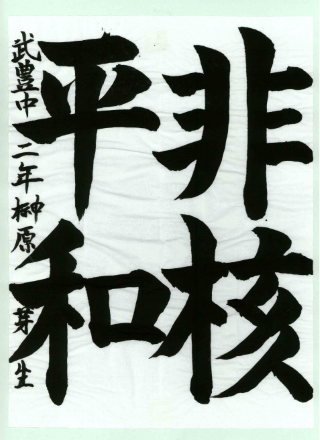 非核
平和
武豊中二年榊原芽生